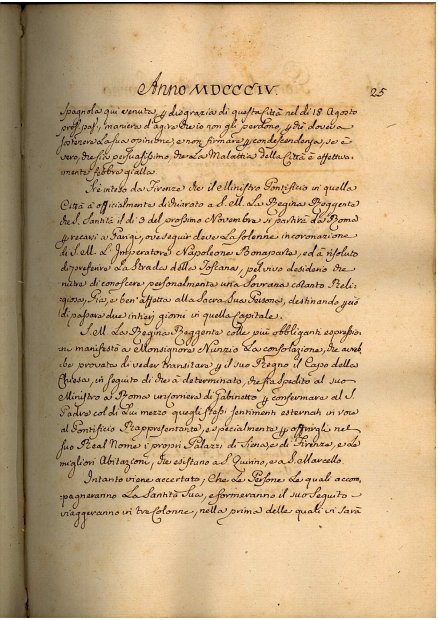 Anno MDCCCIV.
25
Spagnola qui venuta p disgrazia di questa Città nel dì 18. Agosto
pross. pas.°, maniera d'agire che io non gli perdono, p che doveva
sostenere la sua opinione, e non firmare p condescendenza, se è
vero, che sia persuasissimo, che la Malattia della Città è effettiva-
mente febbre gialla.
Si è inteso da Firenze che il Ministro Pontificio in quella
Città à officialmente dichiarato a S. M. La Regina Reggente
che S. Santità il dì 3 del prossimo Novembre si partirà da Roma
p recarsi a Parigi, ove seguir deve la solenne incoronazione
di S. M. L'Imperatore Napoleone Bonaparte, ed à risoluto
di preferire la strada della Toscana, pel vivo desiderio che
nutre di conoscere personalmente una Sovrana cotanto Reli-
giosa, Pia, e ben' affetta alla Sacra Sua Persona, destinando p ciò
di passare due intieri giorni in quella Capitale.
S. M. La Regina Reggente colle più obbliganti espressio-
ni manifestò a Monsignore Nunzio la consolazione, che aveb-
be provata di veder transitare p il suo Regno il Capo della
Chiesa, in seguito di che à determinato, che sia spedito al suo
Ministro a Roma un Corriere di Gabinetto p confermare al S.
Padre col di Lui mezzo quegli stessi sentimenti esternati in voce
al Pontificio Rappresentante, e specialmente p offrirgli nel
suo Real Nome i propri Palazzi di Siena, e di Firenze, e le
migliori Abitazioni, che esistano a S. Quirico, e a S. Marcello.
Intanto viene accertato, Che le Persone, le quali accom-
pagneranno La Santità Sua, e formeranno il suo seguito
viaggeranno in tre Colonne, nella prima delle quali vi sarà